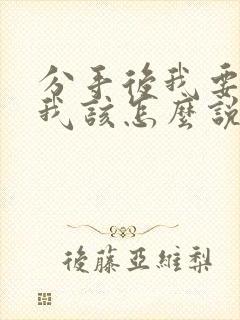 分手後我要
我該怎麼說
後藤亞維梨